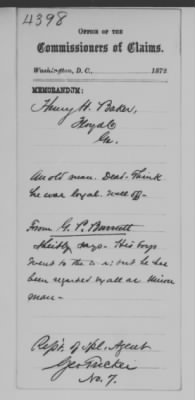 4398
OFFICE OF THE
Commissioners of Claims.
Washington, D. C., 1872
MEMORANDUM:
Henry H. Baker,
Floyd Co
Ga.
An old man. Deaf. Think
he was loyal. Well off-
From G. P. Burnett
Sheibly says- His boys
went to the war; but he has
been regarded by all as Union
man-
Rept. of Spl. Agent
Geo Tucker
No. 7.